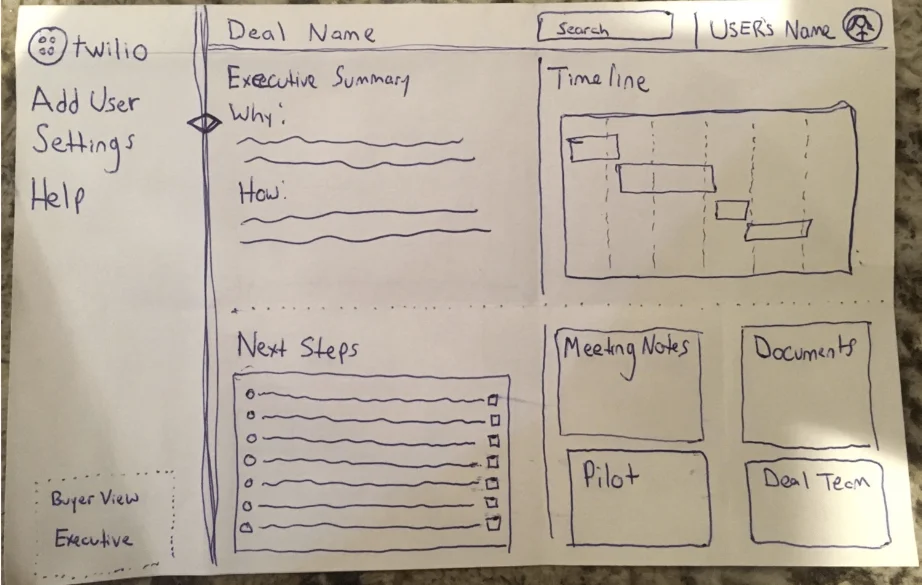 twilio
Add User
Settings
Help
Buyer View
Executive
Deal Name
Search
USER'S Name
Executive Summary
Why:
How:
Timeline
Next Steps
Meeting Notes
Documents
Pilot
Deal Team